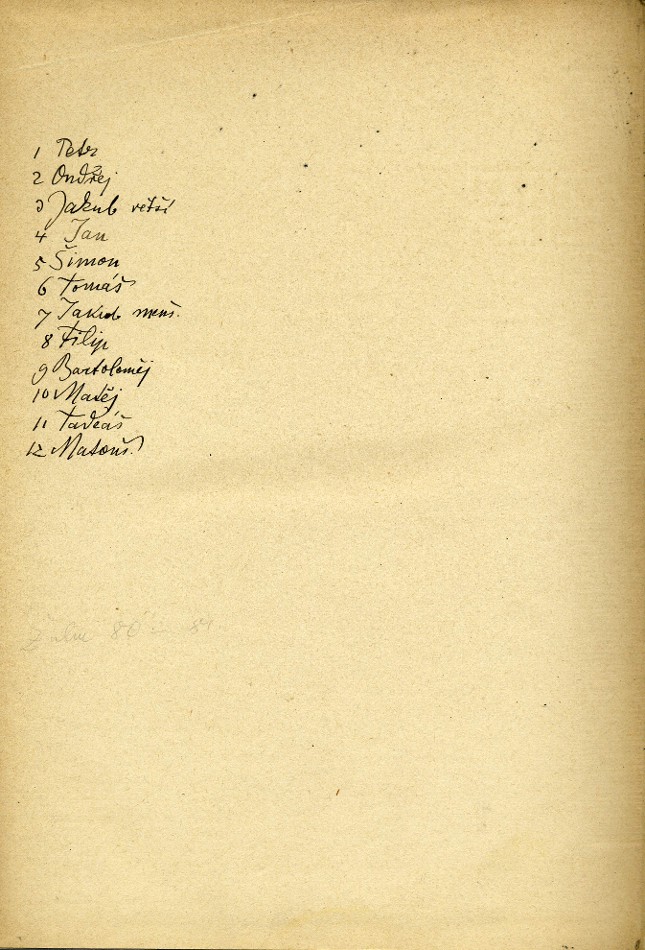 1 Petr
2 Ondřej
3 Jakub větší
4 Jan
5 Šimon
6 Tomáš
7 Jakub menš.
8 Filip
9 Bartoloměj
10 Matěj
11 Tadeáš
12 Matouš
Žalm 86